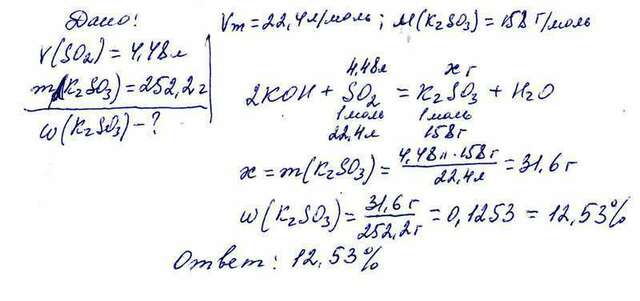 Дано:
V(SO₂) = 4,48 л
m(K₂SO₃) = 252,2 г
ω(K₂SO₃) - ?
Vm = 22,4 л/моль ; M(K₂SO₃) = 158 г/моль
4,48 л x г
2KOH + SO₂ = K₂SO₃ + H₂O
1 моль 1 моль
22,4 л 158 г
x = m(K₂SO₃) = 4,48 л · 158 г / 22,4 л = 31,6 г
ω(K₂SO₃) = 31,6 г / 252,2 г = 0,1253 = 12,53%
Ответ: 12,53%